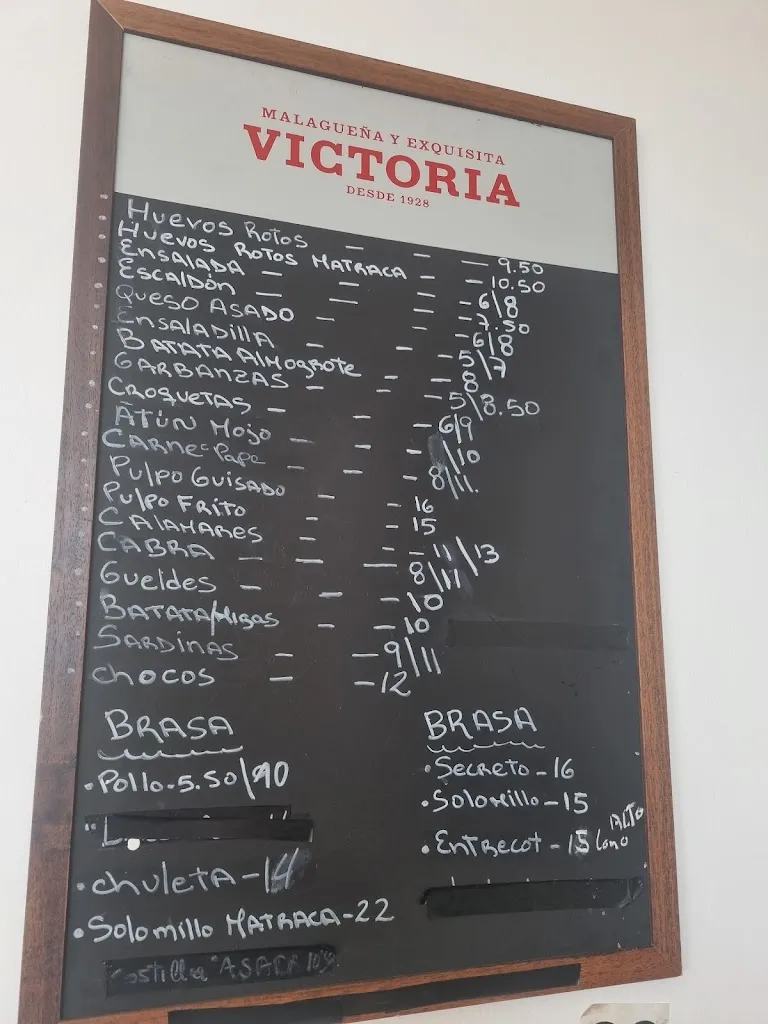 MALAGUEÑA Y EXQUISITA
VICTORIA
DESDE 1928
HUEVOS ROTOS - - - 9.50
HUEVOS ROTOS MATRACA - - 10.50
ENSALADA - - - 6/8
ESCALDÓN - - - 7.50
QUESO ASADO - - 6/8
ENSALADILLA - - - 5/7
BATATA AlMOgROTE - - 8
GARBANZAS - - - 5/8.50
CROQUETAS - - - 6/9
ATÚN MOJO - - /10
CARNE-PAPA - - - 8/11.
PULPO GUISADO - - 16
PULPO FRITO - - 15
CAlAMARES - - 11/13
CABRA - - - 8/11
GUEldES - - - 10
BATATA/HIGAS - - 10
SARDINAS - - 9/11
chocos - - 12
BRASA
•Pollo-5.50/10
•chuleTA-14
•Solomillo MATRACA-22
Costilla ASADA
BRASA
•SECRETO-16
•Solomillo-15
•ENTRECOT-15 lomo ALTO